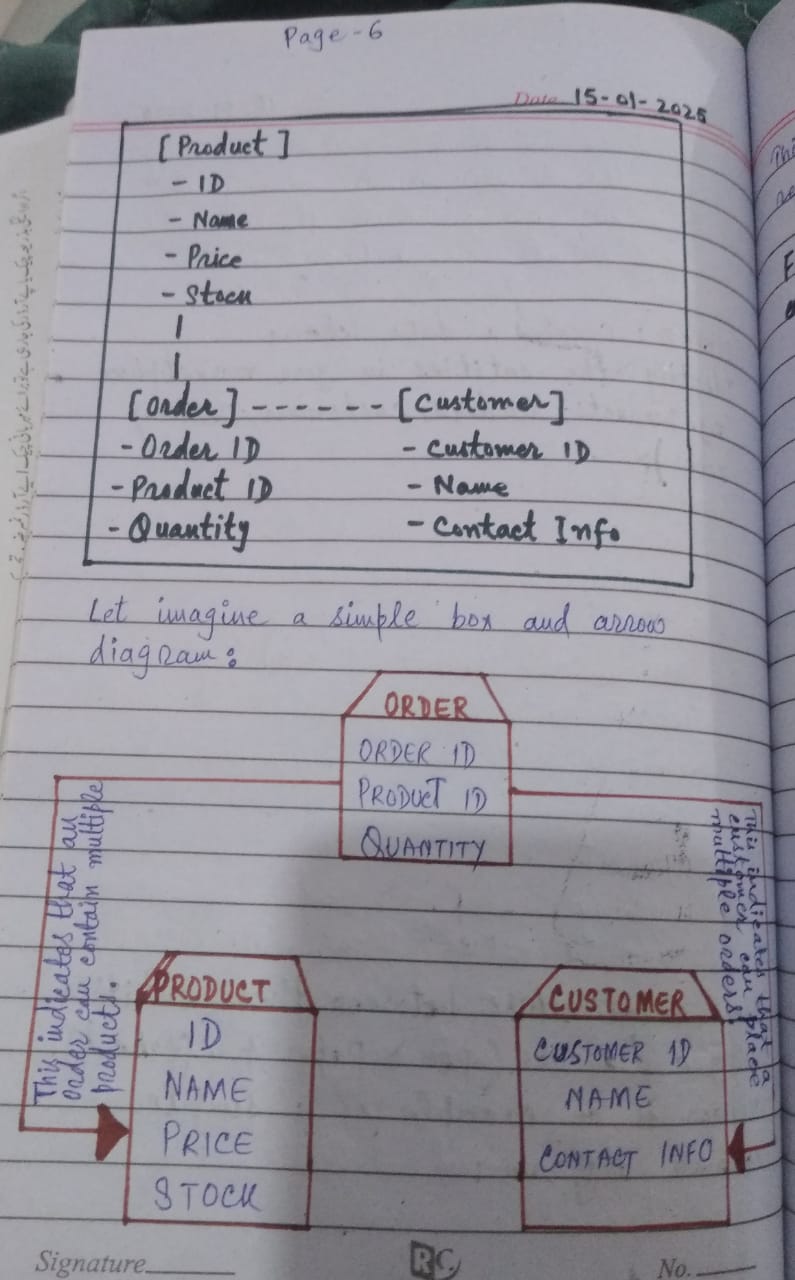 Page-6
Date 15-01-2025
[Product]
- ID
- Name
- Price
- Stock
|
|
[Order] ------ [Customer]
- Order ID - Customer ID
- Product ID - Name
- Quantity - Contact Info
Let imagine a simple box and arrow
diagram:
ORDER
ORDER ID
PRODUCT ID
QUANTITY
This indicates that an
order can contain multiple
products.
This indicates that a
customer can place
multiple orders.
PRODUCT
ID
NAME
PRICE
STOCK
CUSTOMER
CUSTOMER ID
NAME
CONTACT INFO
Signature
RC
No.